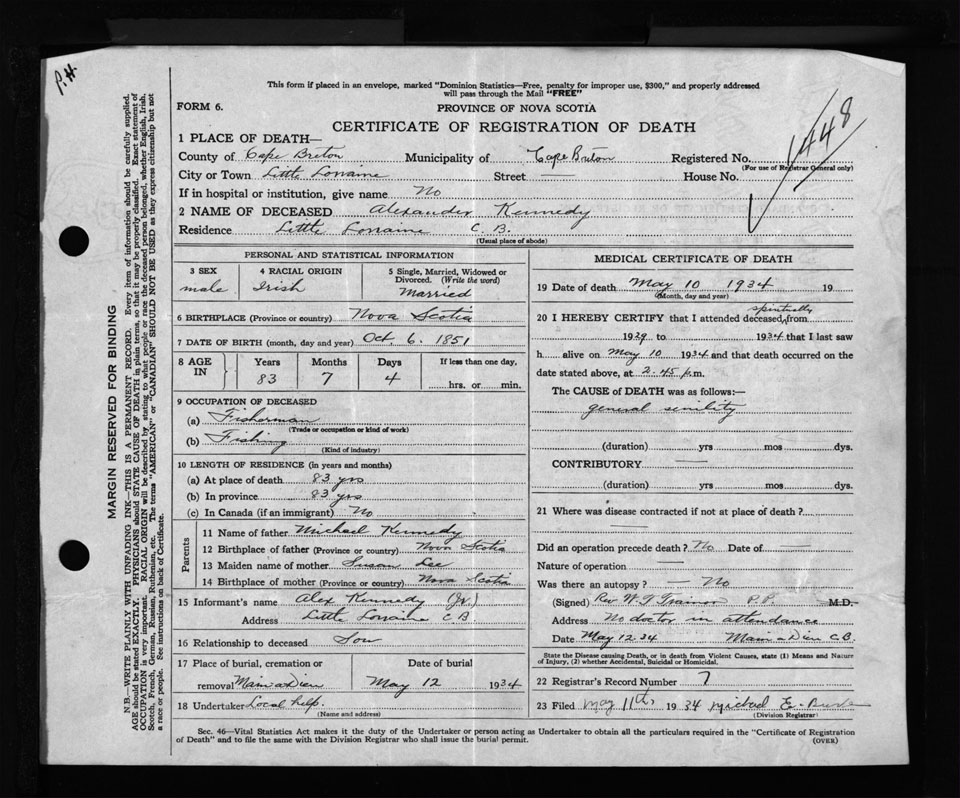 P.H.
This form if placed in an envelope, marked "Dominion Statistics—Free, penalty for improper use, $300," and properly addressed
will pass through the Mail "FREE"
FORM 6.
PROVINCE OF NOVA SCOTIA
CERTIFICATE OF REGISTRATION OF DEATH
1448
1 PLACE OF DEATH—
County of Cape Breton Municipality of Cape Breton Registered No.
(For use of Registrar General only)
City or Town Little Lorraine Street — House No.
If in hospital or institution, give name No
2 NAME OF DECEASED Alexander Kennedy
Residence Little Lorraine C. B.
(Usual place of abode)
PERSONAL AND STATISTICAL INFORMATION
3 SEX
male
4 RACIAL ORIGIN
Irish
5 Single, Married, Widowed or
Divorced. (Write the word)
Married
6 BIRTHPLACE (Province or country) Nova Scotia
7 DATE OF BIRTH (month, day and year) Oct 6. 1851
8 AGE IN
Years Months Days If less than one day,
83 7 4 hrs. or min.
9 OCCUPATION OF DECEASED
(a) Fisherman
(Trade or occupation or kind of work)
(b) Fishing
(Kind of industry)
10 LENGTH OF RESIDENCE (in years and months)
(a) At place of death 83 yrs
(b) In province 83 yrs
(c) In Canada (if an immigrant) No
Parents
11 Name of father Michael Kennedy
12 Birthplace of father (Province or country) Nova Scotia
13 Maiden name of mother Susan Lee
14 Birthplace of mother (Province or country) Nova Scotia
15 Informant's name Alex Kennedy (Jr.)
Address Little Lorraine C B
16 Relationship to deceased Son
17 Place of burial, cremation or Date of burial
removal Main a Dieu May 12 1934
18 Undertaker Local help.
(Name and address)
MEDICAL CERTIFICATE OF DEATH
19 Date of death May 10 1934 19
(Month, day and year)
spiritually
20 I HEREBY CERTIFY that I attended deceased from
1929 to 1934 that I last saw
h alive on May 10 1934 and that death occurred on the
date stated above, at 2.45 p.m.
The CAUSE of DEATH was as follows:—
general senility
(duration) yrs mos dys.
CONTRIBUTORY —
(duration) yrs mos dys.
21 Where was disease contracted if not at place of death?
—
Did an operation precede death? No Date of —
Nature of operation —
Was there an autopsy? — No
(Signed) Rev W. J Trainor P.P. M.D.
Address No doctor in attendance
Date May 12 34 Main a Dieu C.B.
State the Disease causing Death, or in death from Violent Causes, state (1) Means and Nature
of Injury, (2) whether Accidental, Suicidal or Homicidal.
22 Registrar's Record Number 7
23 Filed May 11th 1934 Michael E.
(Division Registrar)
Sec. 46—Vital Statistics Act makes it the duty of the Undertaker or person acting as Undertaker to obtain all the particulars required in the "Certificate of Registration
of Death" and to file the same with the Division Registrar who shall issue the burial permit.
(OVER)
MARGIN RESERVED FOR BINDING
N.B.—WRITE PLAINLY WITH UNFADING INK—THIS IS A PERMANENT RECORD. Every item of information should be carefully supplied.
AGE should be stated EXACTLY. PHYSICIANS should STATE CAUSE OF DEATH in plain terms, so that it may be properly classified. Exact statement of
OCCUPATION is very important. RACIAL ORIGIN will be described by stating to what people or race the deceased person belonged, whether English, Irish,
Scotch, French, German, Russian, Ruthenian, etc. The terms "AMERICAN" or "CANADIAN" SHOULD NOT BE USED as they express citizenship but not
a race or people. See instructions on back of Certificate.